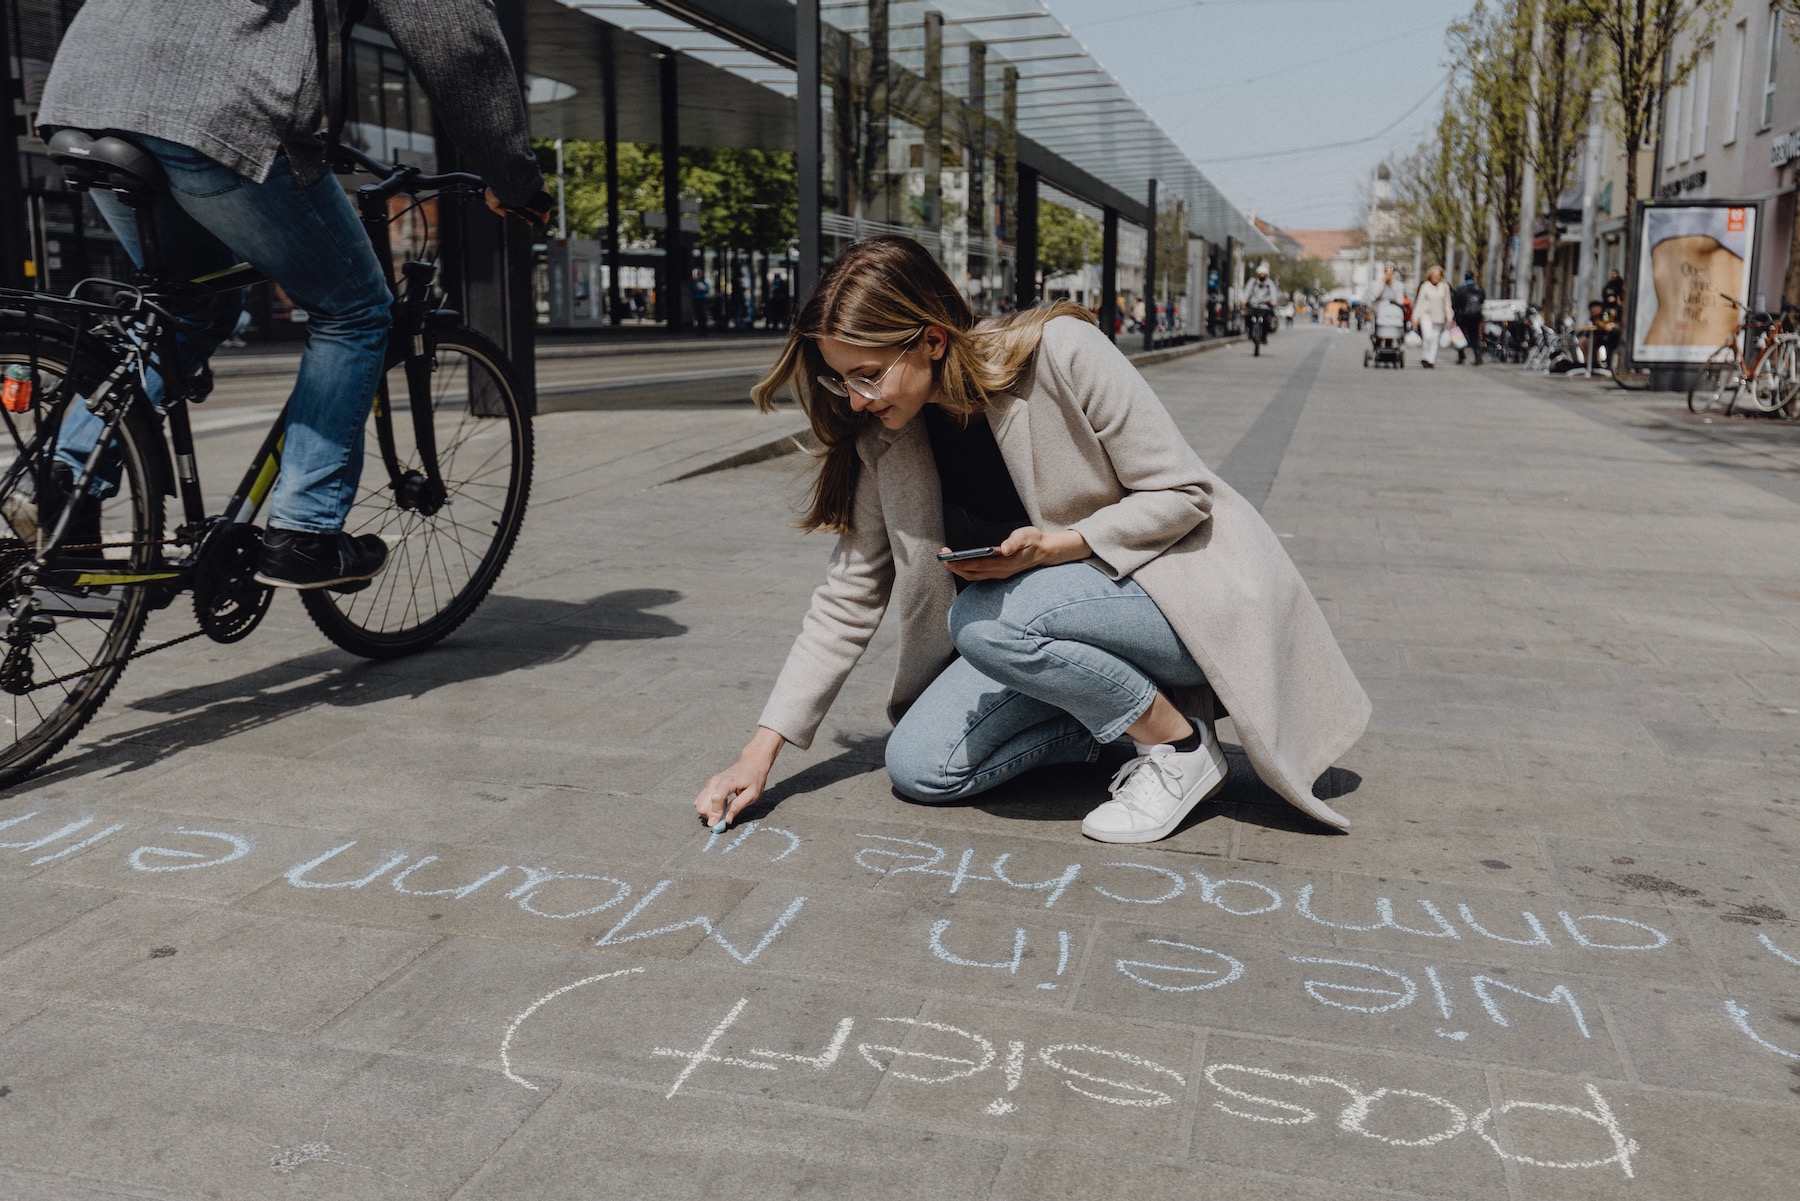 passiert)
wie ein Mann ein
anmachte u